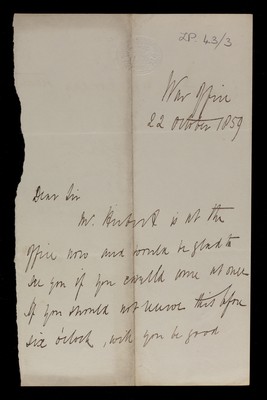 LP 43/3
War Office
22 October 1859
Dear Sir
Mr. Herbert is at the
Office now and would be glad to
see you if you could come at once
If you should not receive this before
six o'clock, will you be good